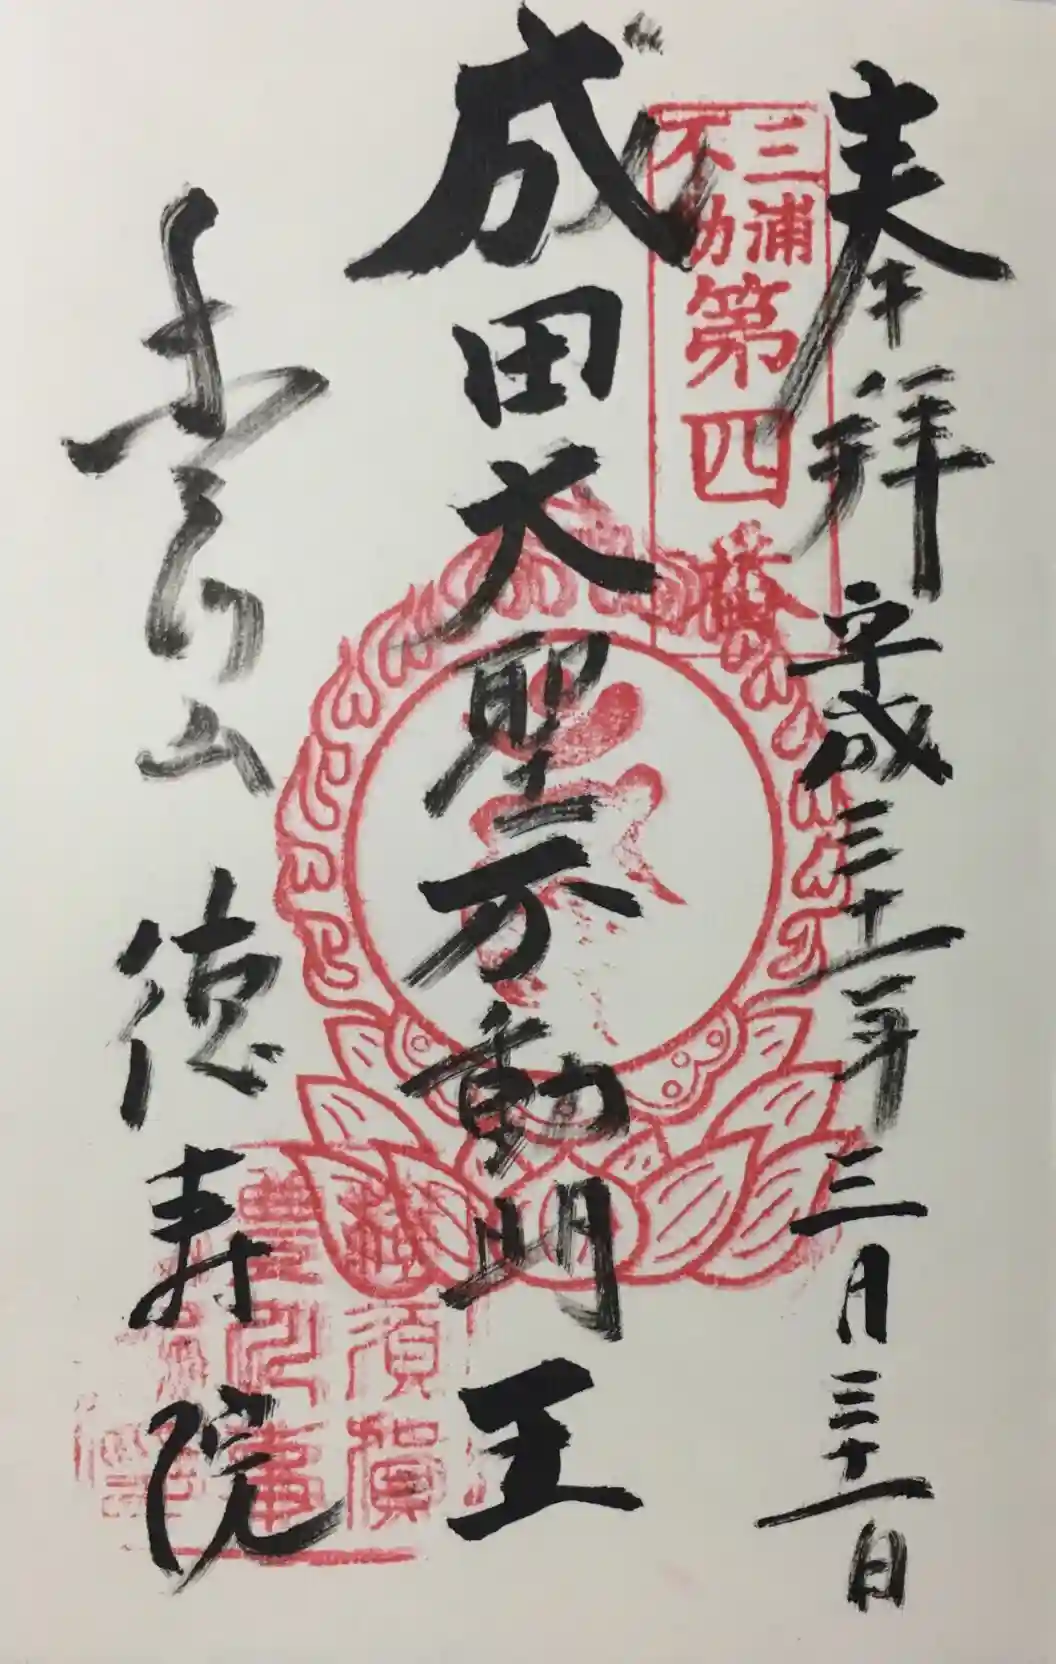 奉拝 平成三十一年三月三十一日
三浦
不動
第四番
成田大聖不動明王
山 徳寿院
須賀